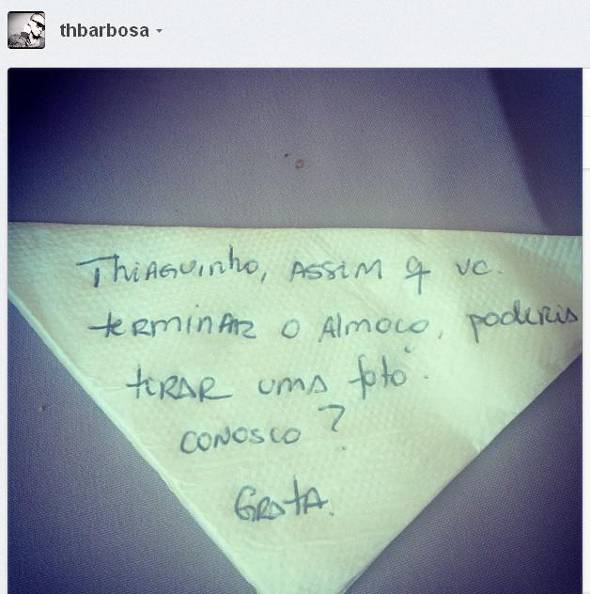 thbarbosa
Thiaguinho, assim q vc.
terminar o almoço, poderia
tirar uma foto
conosco?
Grata.